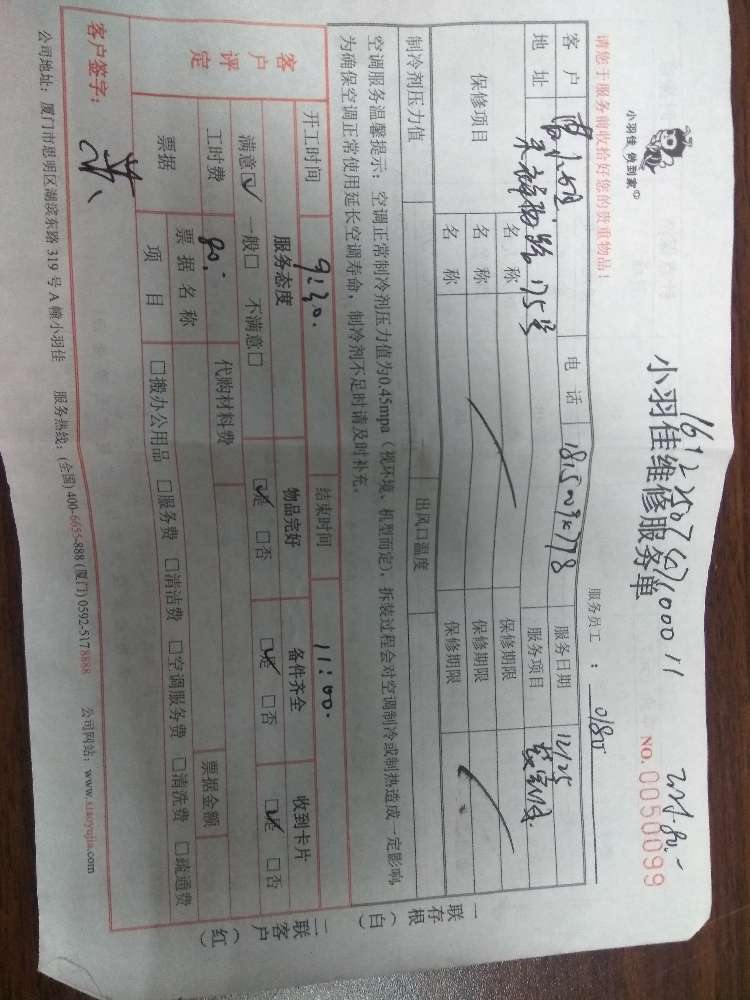 小羽佳 做到家
小羽佳维修服务单
NO. 0050099
请您于服务前收拾好您的贵重物品！
服务员工：0180
客户
电话
服务日期 12/25
地址
175号
服务项目
保修项目
名称
保修期限
名称
保修期限
名称
保修期限
制冷剂压力值
出风口温度
空调服务温馨提示：空调正常制冷剂压力值为0.45mpa（视环境、机型而定），拆装过程会对空调制冷或制热造成一定影响，
为确保空调正常使用延长空调寿命，制冷剂不足时请及时补充。
开工时间 9:30.
结束时间 11:00.
客户评定
服务态度
物品完好
备件齐全
收到卡片
满意☑ 一般□ 不满意□
☑是 □否
☑是 □否
☑是 □否
工时费 80.
代购材料费
票据
票据名称
票据金额
项目
□搬办公用品 □服务费 □清洁费 □空调服务费 □清洗费 □疏通费
客户签字：
公司地址：厦门市思明区湖滨东路 319 号 A 幢小羽佳 服务热线：(全国) 400-6655-888 (厦门) 0592-5178888 公司网站：www.xiaoyujia.com
一联存根（白）
二联客户（红）